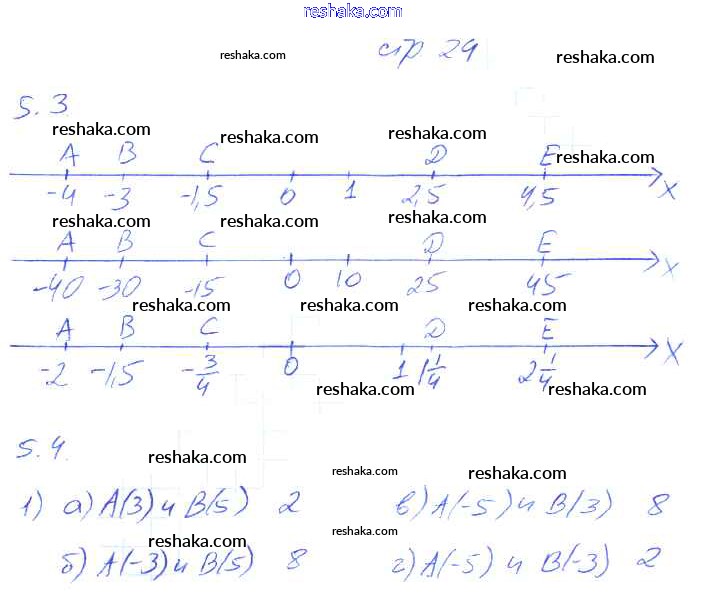 reshaka.com
reshaka.com стр 29 reshaka.com
5.3
reshaka.com reshaka.com reshaka.com reshaka.com
A B C D E
-4 -3 -1,5 0 1 2,5 4,5 x
reshaka.com reshaka.com reshaka.com
A B C D E
-40 -30 -15 0 10 25 45 x
reshaka.com reshaka.com reshaka.com
A B C D E
-2 -1,5 -3/4 0 1 1 1/4 2 1/4 x
reshaka.com reshaka.com
5.4.
reshaka.com reshaka.com reshaka.com
1) а) A(3) и B(5) 2 в) A(-5) и B(3) 8
reshaka.com reshaka.com
б) A(-3) и B(5) 8 г) A(-5) и B(-3) 2